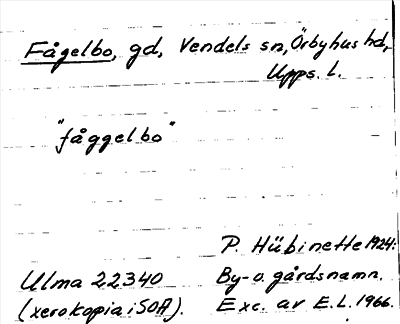 Fågelbo, gd, Vendels sn, Örbyhus hd,
Upps. l.
"fåggelbo"
P. Hübinette 1924:
Ulma 22340 By- o. gårdsnamn.
(xerokopia i SOA). Exc. av E.L. 1966.